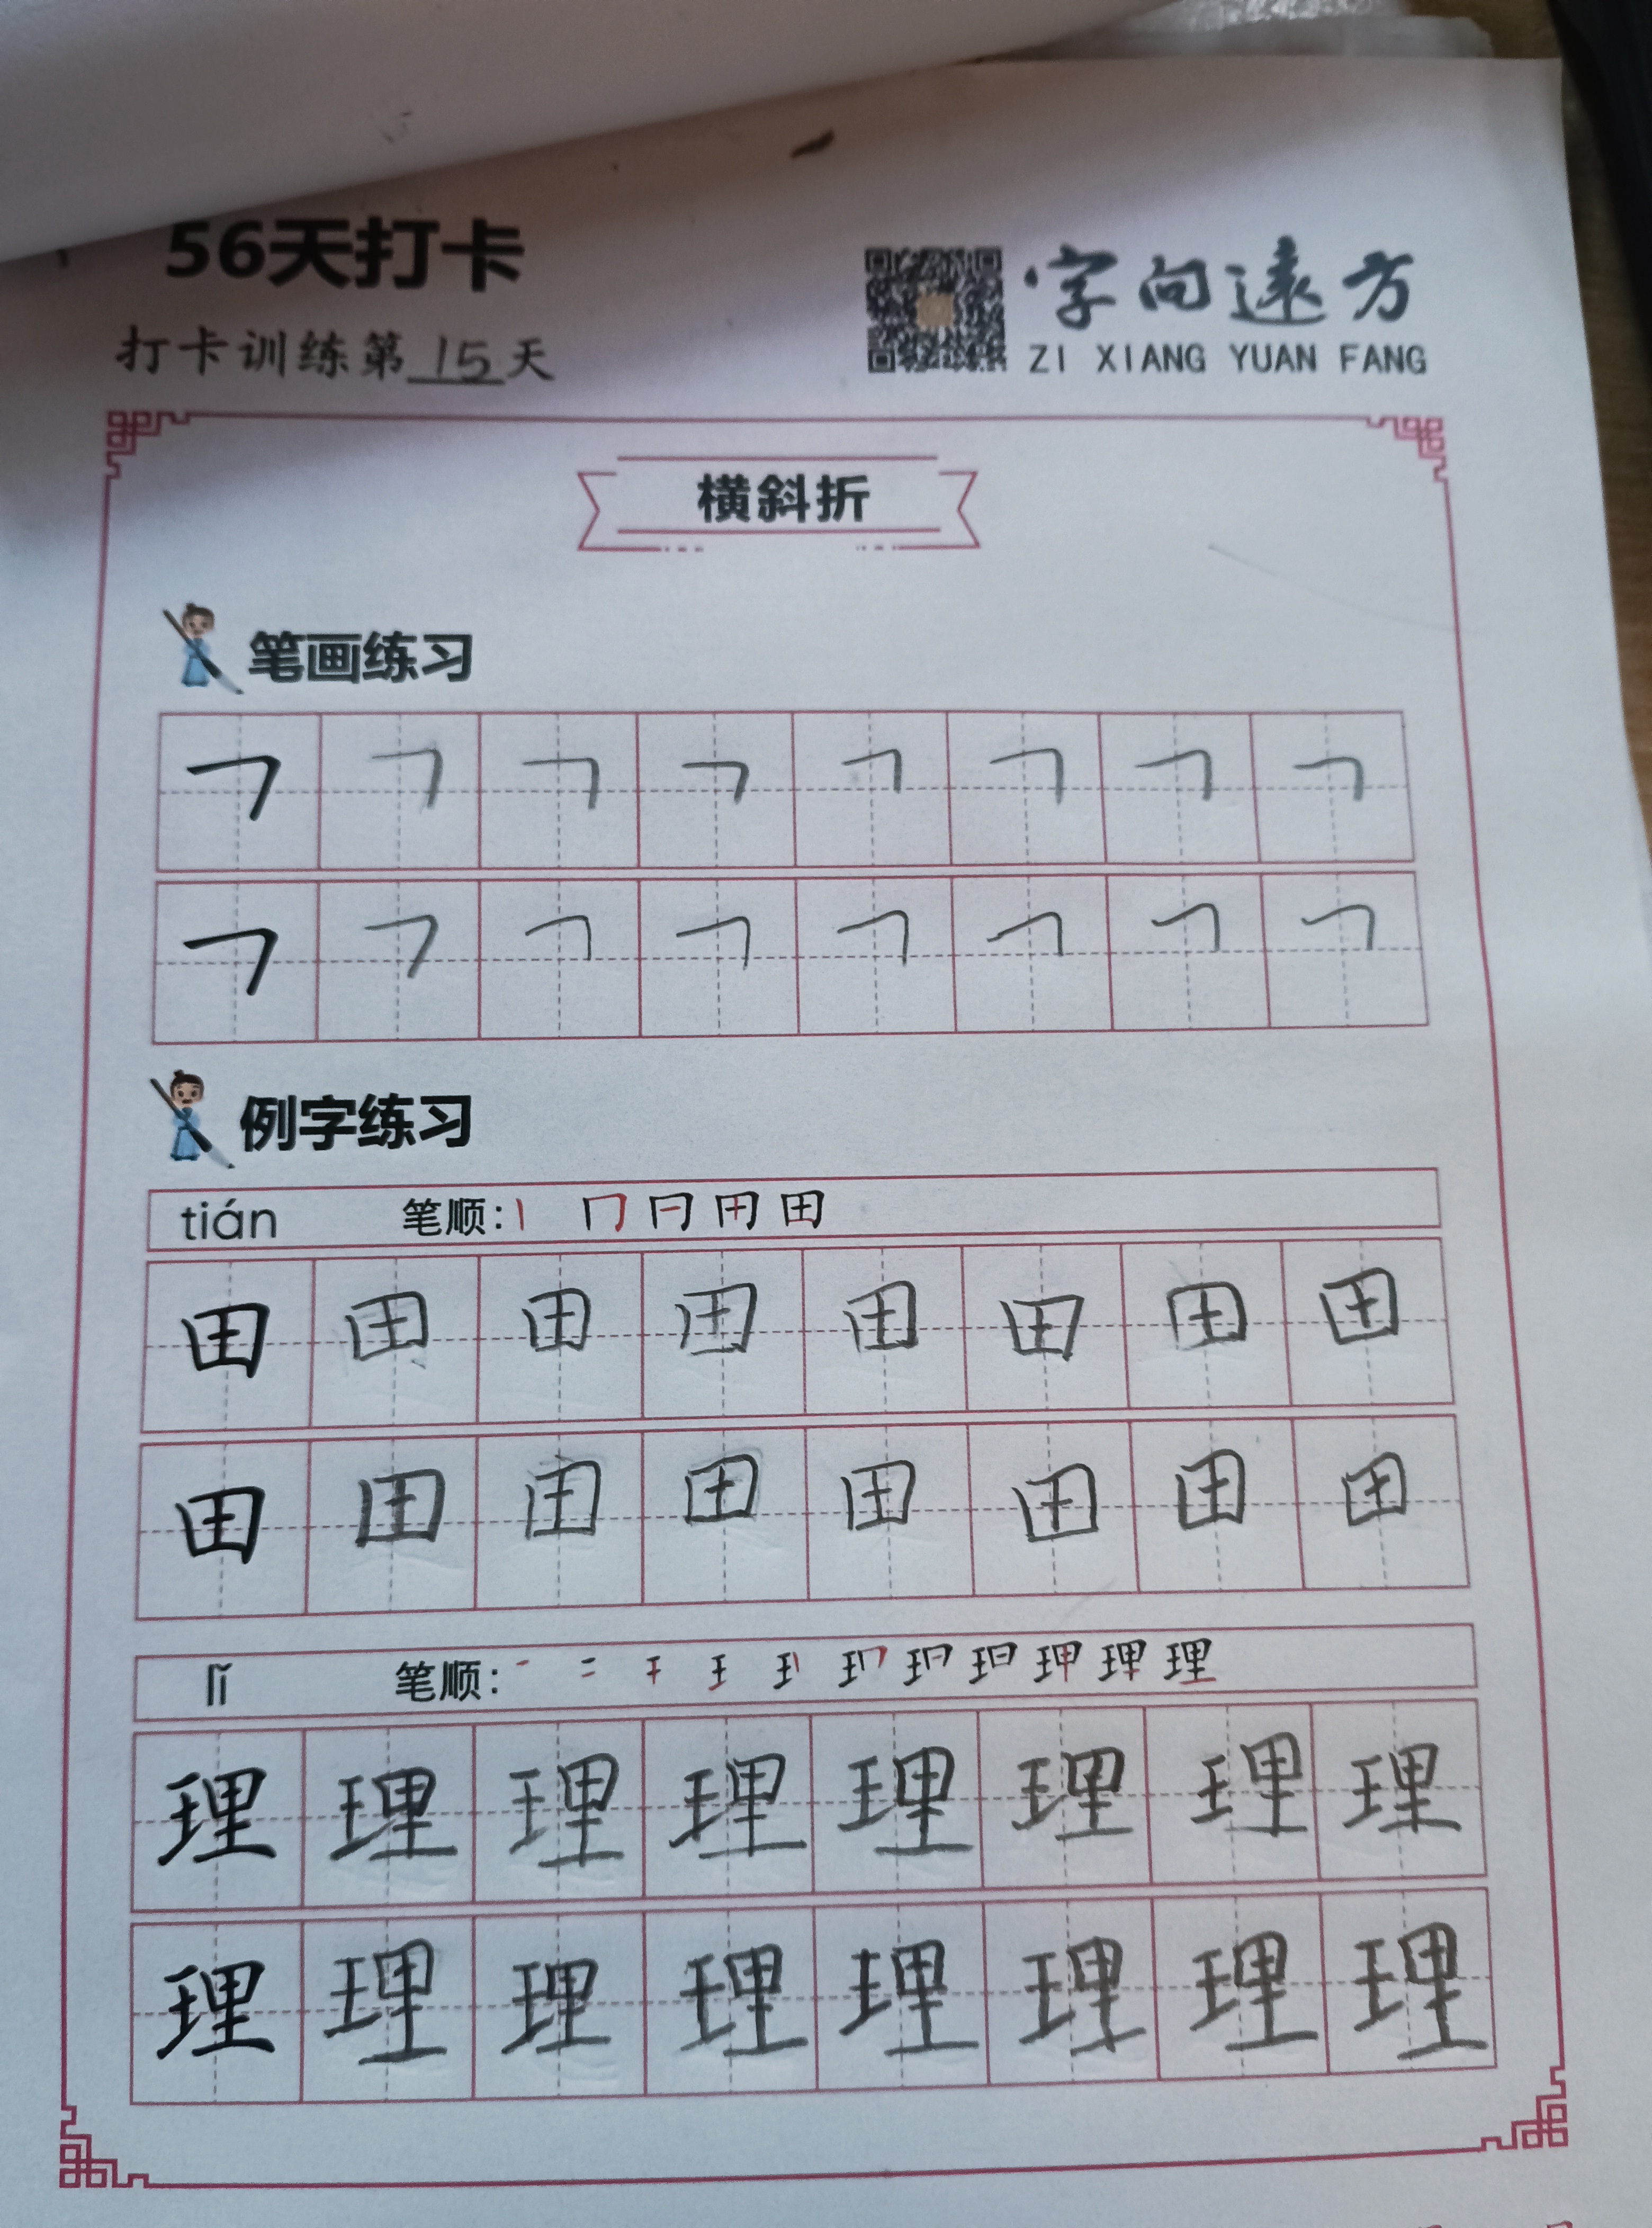 56天打卡
打卡训练第15天
字向远方
ZI XIANG YUAN FANG
横斜折
笔画练习
㇕ ㇕ ㇕ ㇕ ㇕ ㇕ ㇕ ㇕
㇕ ㇕ ㇕ ㇕ ㇕ ㇕ ㇕ ㇕
例字练习
tián 笔顺:
田 田 田 田 田 田 田 田
田 田 田 田 田 田 田 田
lǐ 笔顺:
理 理 理 理 理 理 理 理
理 理 理 理 理 理 理 理